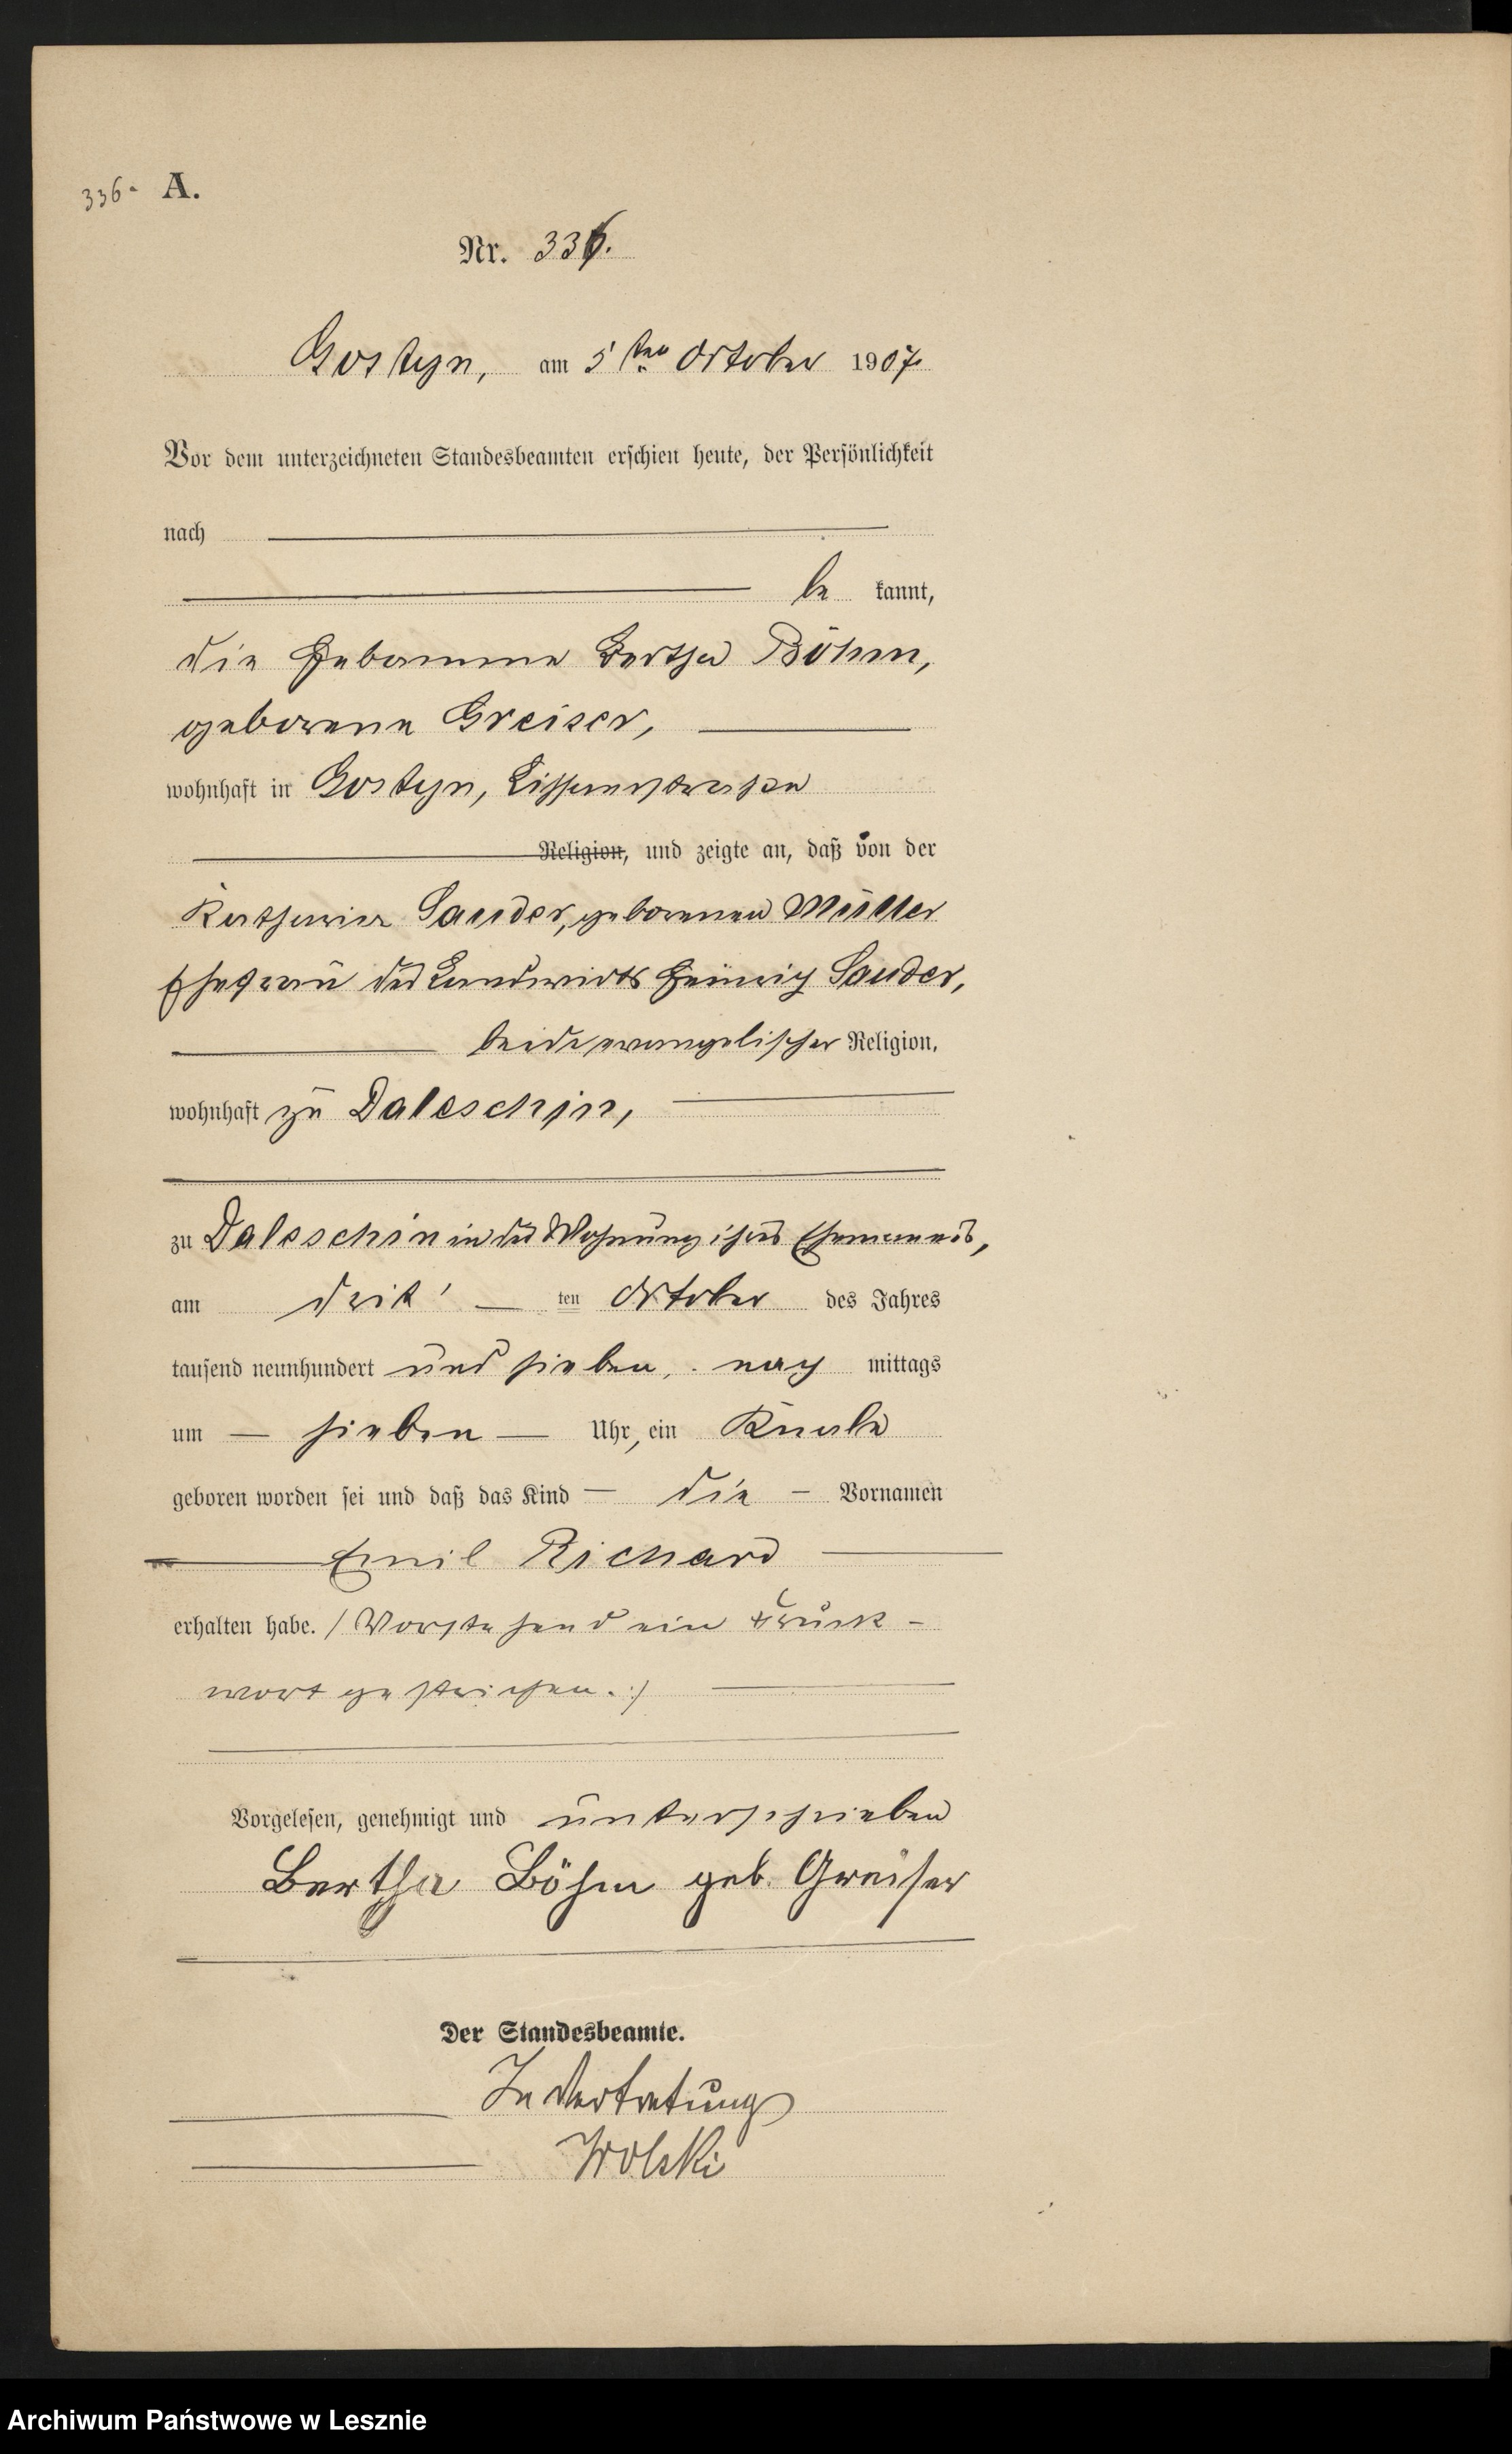 336. A.
Nr. 336.
Gostyn, am 5ten Oktober 1907
Vor dem unterzeichneten Standesbeamten erschien heute, der Persönlichkeit
nach
be kannt,
die Hebamme Bertha Böhm,
geborene Greiser,
wohnhaft in Gostyn, Lissenerstrasse
Religion, und zeigte an, daß von der
Katharina Sauder, geborenen Müller
Ehefrau des Landwirts Heinrich Sauder,
beide evangelischer Religion,
wohnhaft zu Daleschin,
zu Daleschin in der Wohnung ihres Ehemannes,
am dritten Oktober des Jahres
tausend neunhundert und sieben, nach mittags
um sieben Uhr, ein Knabe
geboren worden sei und daß das Kind die Vornamen
Emil Richard
erhalten habe. / Vorstehend ein Druck-
wort gestrichen. :/
Vorgelesen, genehmigt und unterschrieben
Bertha Böhm geb. Greiser
Der Standesbeamte.
In Vertretung
Wolski
Archiwum Państwowe w Lesznie